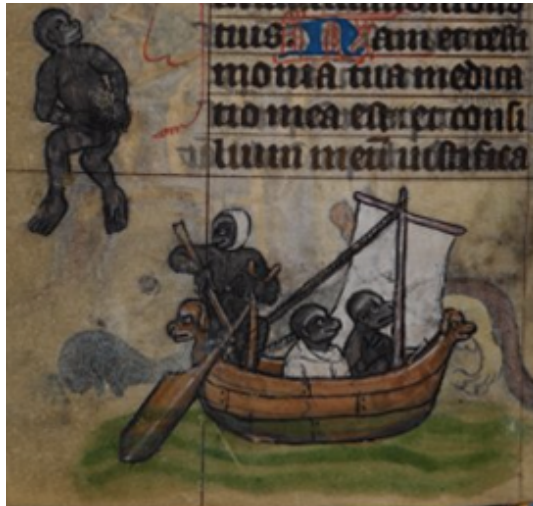 tuis. Nam et testi
monia tua medita
tio mea est et consi
lium meū iustifica